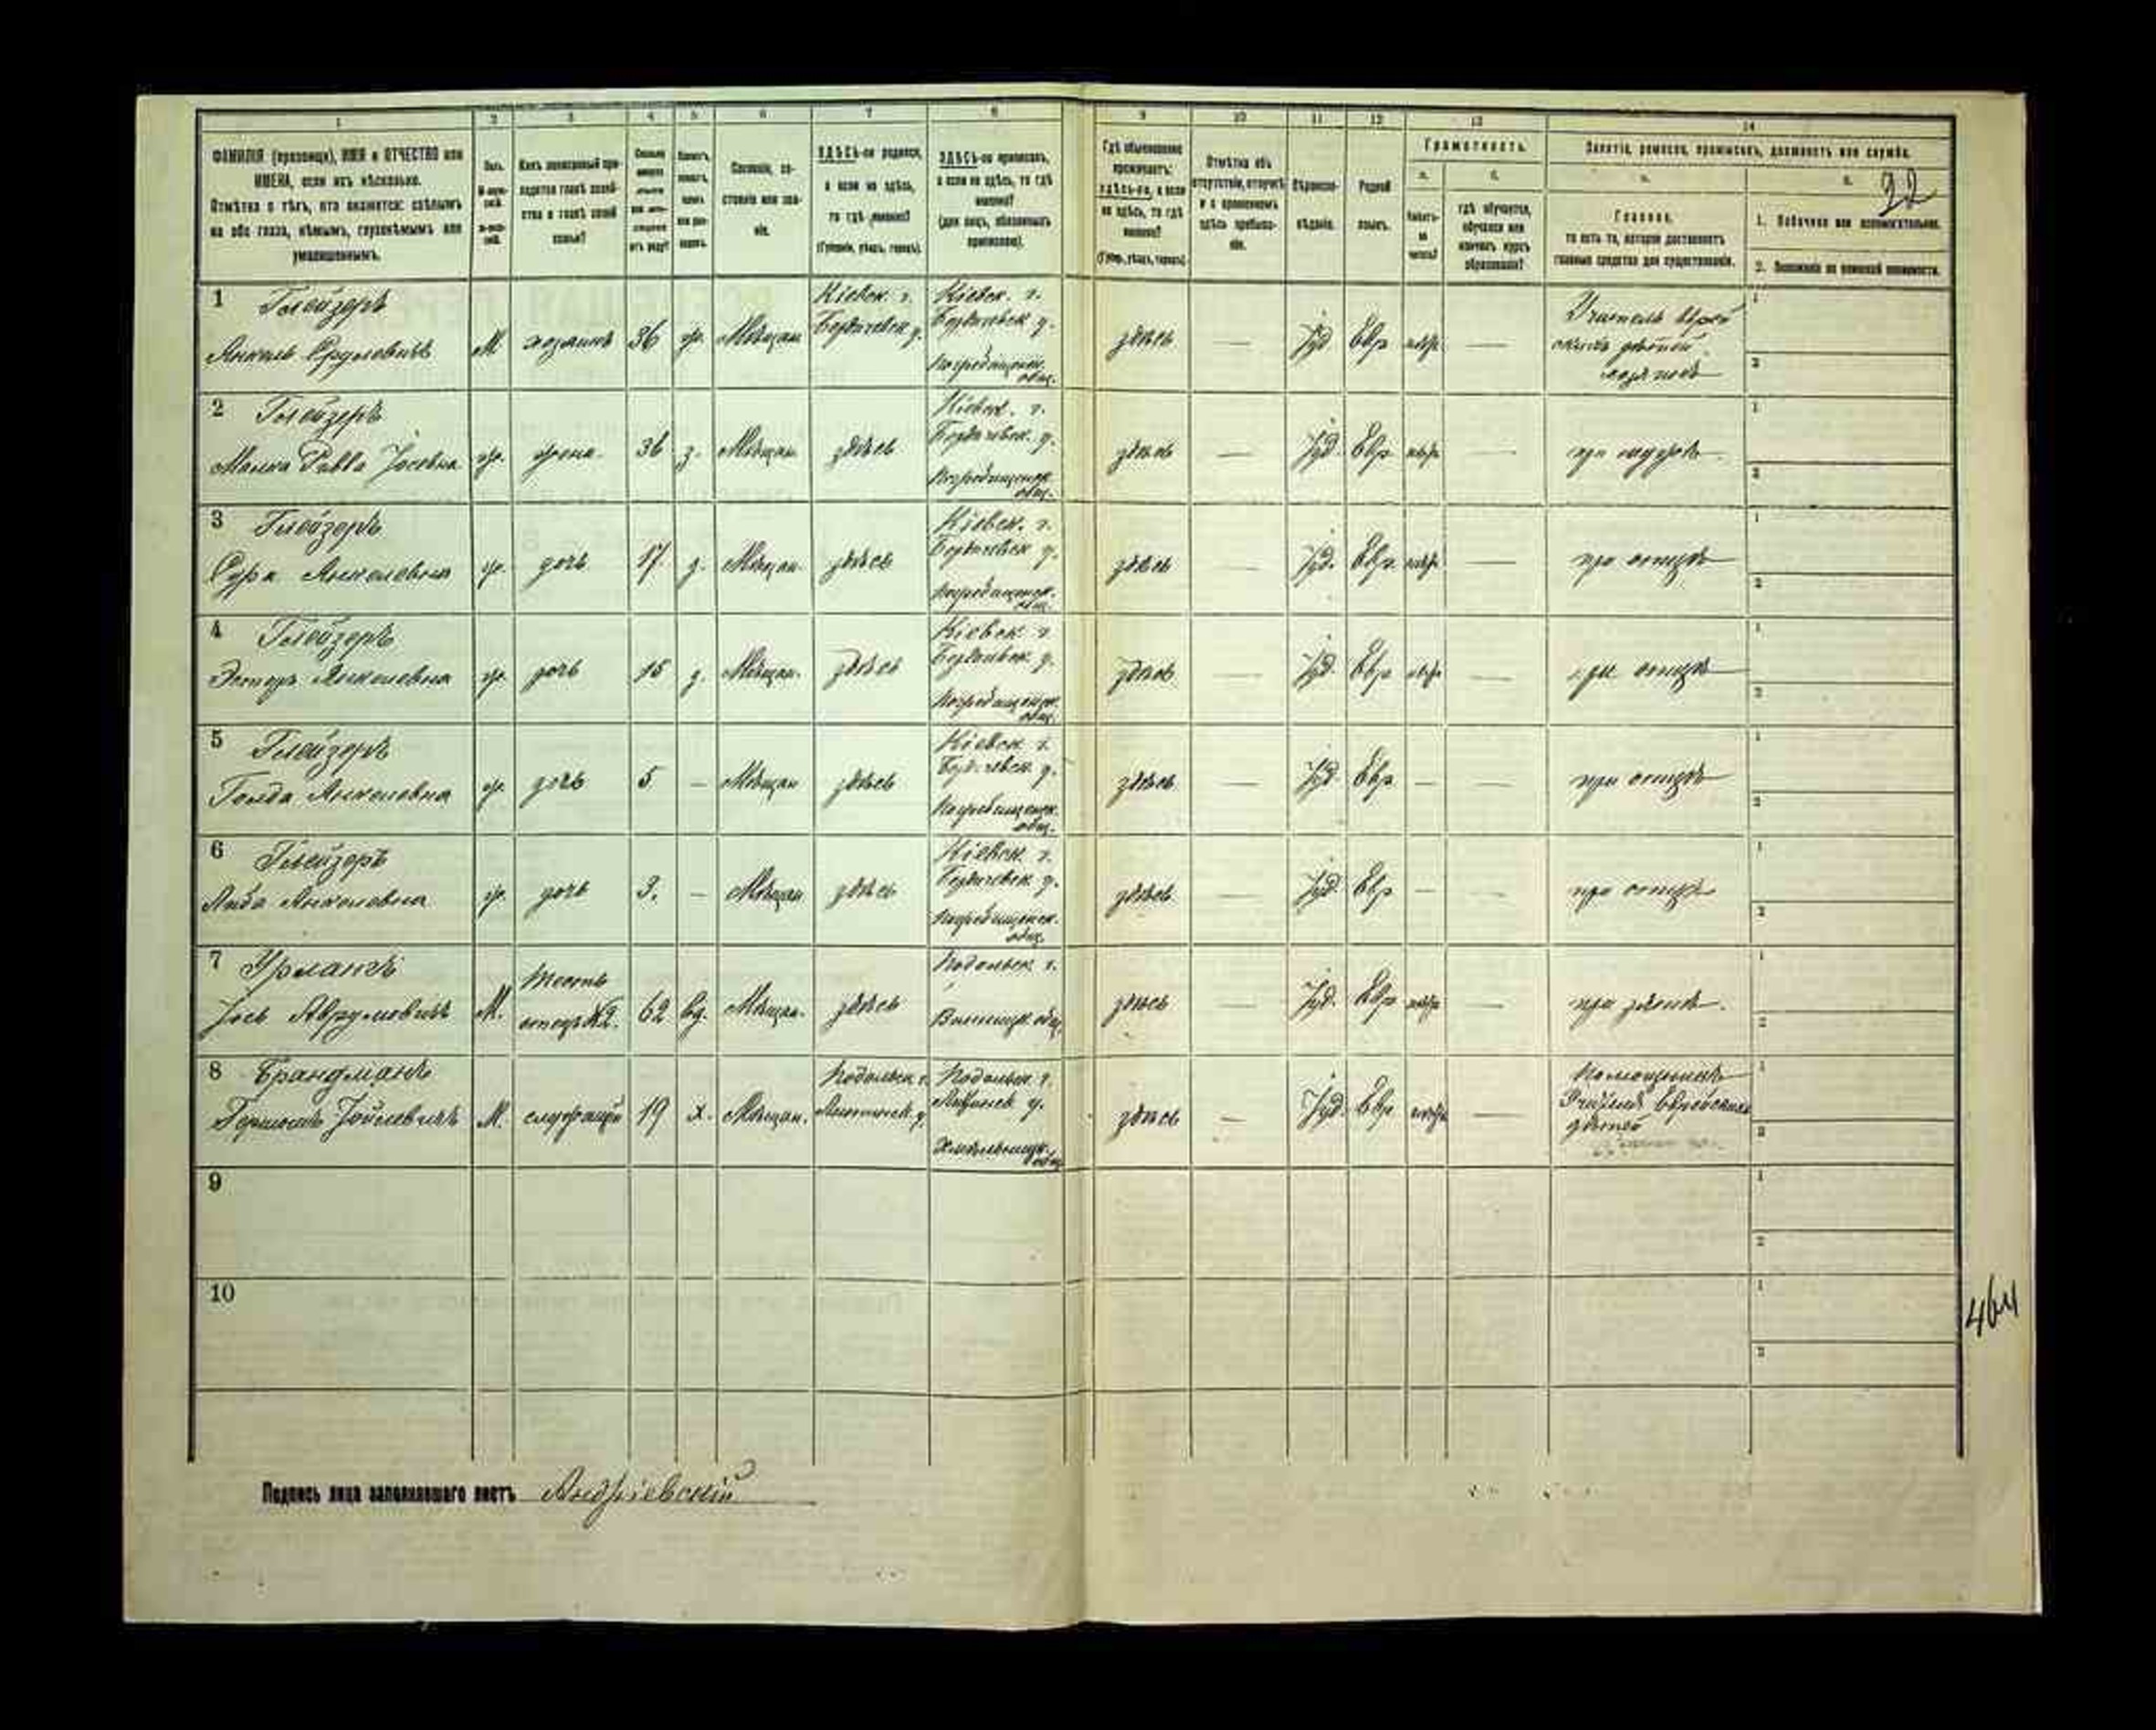 1 2 3 4 5 6 7 8 9 10 11 12 13 14
ФАМИЛІЯ (прозвище), ИМЯ и ОТЧЕСТВО или
ИМЕНА, если ихъ нѣсколько.
Отмѣтка о тѣхъ, кто окажется: слѣпымъ
на оба глаза, нѣмымъ, глухонѣмымъ или
умалишеннымъ.
Полъ.
Какъ записанный при-
ходится главѣ хозяй-
ства и главѣ своей
семьи?
Сословіе, со-
стояніе или зва-
ніе.
ЗДѢСЬ-ли родился,
а если не здѣсь,
то гдѣ именно?
(Губернія, уѣздъ, городъ).
ЗДѢСЬ-ли приписанъ,
а если не здѣсь, то гдѣ
именно?
(для лицъ, обязанныхъ
припискою).
Гдѣ обыкновенно
проживаетъ:
здѣсь-ли, а если
не здѣсь, то гдѣ
именно?
(Губер., уѣздъ, городъ).
Отмѣтка объ
отсутствіи, отлучкѣ
и о временномъ
здѣсь пребыва-
ніи.
Вѣроиспо-
вѣданіе.
Родной
языкъ.
Грамотность.
а. б.
Умѣетъ-
ли
читать?
гдѣ обучается,
обучался или
кончилъ курсъ
образованія?
Занятіе, ремесло, промыселъ, должность или служба.
Главное,
то есть то, которое доставляетъ
главныя средства для существованія.
1. Побочное или вспомогательное.
2. Положеніе по воинской повинности.
22
1 Глейзеръ
Янкель Сруловичъ
М хозяинъ 36 ж. Мѣщан.
Кіевск. г.
Бердичевск. у.
Кіевск. г.
Бердичевск. у.
Погребищенск.
общ.
здѣсь — Іуд. Евр. —
Учитель еврей
скихъ дѣтей
хозяинъ
2 Глейзеръ
Малка Ривва Іосевна
ж. жена 36 з. Мѣщан. здѣсь
Кіевск. г.
Бердичевск. у.
Погребищенск.
общ.
здѣсь — Іуд. Евр. —
при мужѣ
3 Глейзеръ
Сура Янкелевна
ж. дочь 17 д. Мѣщан. здѣсь
Кіевск. г.
Бердичевск. у.
Погребищенск.
общ.
здѣсь — Іуд. Евр. —
при отцѣ
4 Глейзеръ
Эстеръ Янкелевна
ж. дочь 15 д. Мѣщан. здѣсь
Кіевск. г.
Бердичевск. у.
Погребищенск.
общ.
здѣсь — Іуд. Евр. —
при отцѣ
5 Глейзеръ
Голда Янкелевна
ж. дочь 5 — Мѣщан здѣсь
Кіевск. г.
Бердичевск. у.
Погребищенск.
общ.
здѣсь — Іуд. Евр. — —
при отцѣ
6 Глейзеръ
Янкелевна
ж. дочь 3. — Мѣщан здѣсь
Кіевск. г.
Бердичевск. у.
Погребищенск.
общ.
здѣсь — Іуд. Евр — —
при отцѣ
7 Урланъ
Іось Аврумовичъ
М. тесть
отецъ №2. 62 вд. Мѣщан. здѣсь
Подольск. г.
Винницк. общ.
здѣсь — Іуд. Евр. —
при зятѣ.
8 Брандманъ
Гершонъ Іойлевичъ
М. служащій 19 х. Мѣщан.
Подольск. г.
Литинск. у.
Подольск. г.
Литинск. у.
Хмѣльницк.
общ.
здѣсь — Іуд. Евр. —
Помощникъ
Учителя Еврейскихъ
дѣтей
9
10
464
Подпись лица заполнявшаго листъ Андріевскій